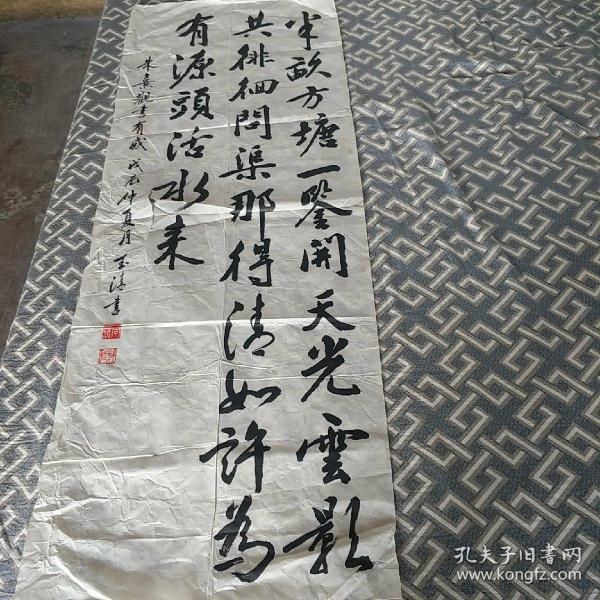 半畝方塘一鑒開天光雲影
共徘徊問渠那得清如許為
有源頭活水来
朱熹觀書有感 戊辰仲夏月 玉清書
孔夫子旧書网
www.kongfz.com